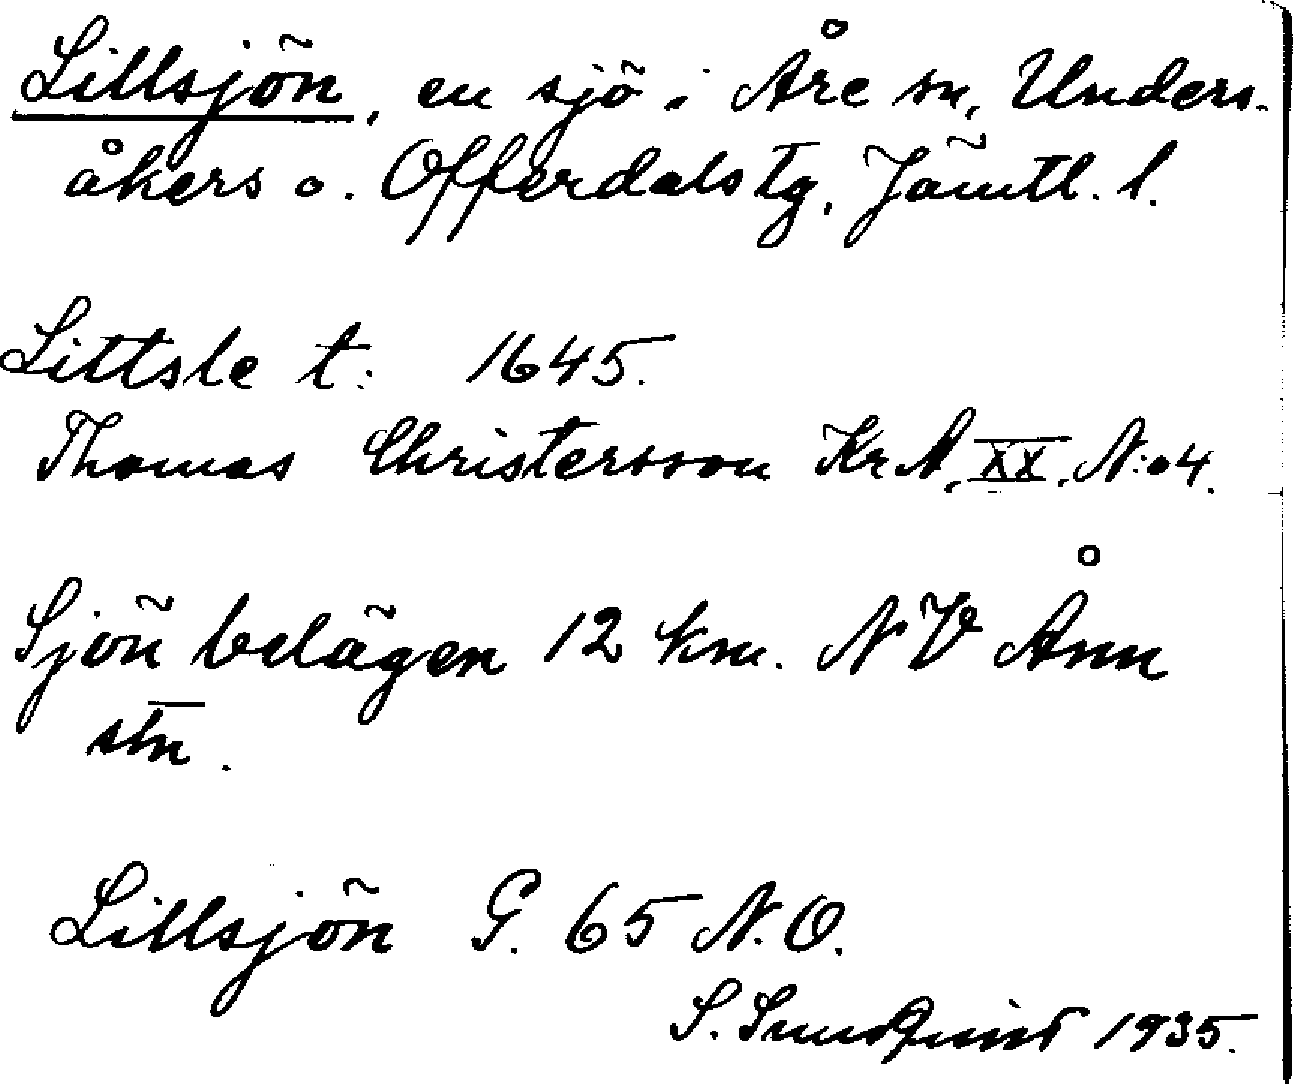 Lillsjön, en sjö i Åre sn, Unders-
åkers o. Offerdals tg, Jämtl. l.
Littsle t: 1645.
Thomas Christersson Kr A, XX, N:o 4.
Sjön belägen 12 km. NV Ånn
stn.
Lillsjön G. 65 N.O.
S. Sundquist 1935.